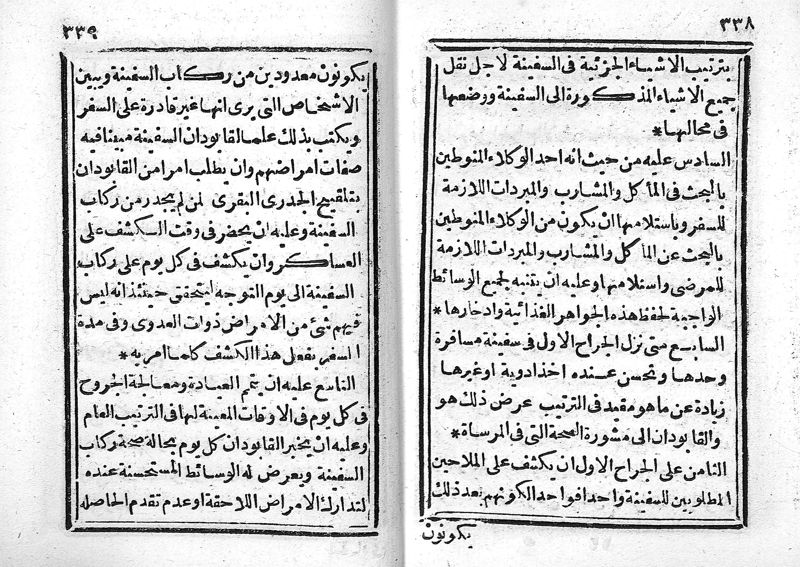 ٣٣٨
بترتيب الاشياء الجزئية فى السفينة لاجل نقل
جميع الاشياء المذكورة الى السفينة ووضعها
فى محالها*
السادس عليه من حيث انه احد الوكلاء المنوطين
بالبحث فى المأكل والمشارب والمبردات اللازمة
للسفر وباستلامها ان يكون من الوكلاء المنوطين
بالبحث عن المأكل والمشارب والمبردات اللازمة
للمرضى واستلامها وعليه ان يتنبه لجميع الوسائط
الواجبة لحفظ هذه الجواهر الغذائية وادخارها*
السابع متى نزل الجراح الاول فى سفينة مسافرة
وحدها وتحسن عنده اخذ ادوية او غيرها
زيادة عن ما هو مقيد فى الترتيب عرض ذلك هو
والقابودان الى مشورة الصحة التى فى المرساة*
الثامن على الجراح الاول ان يكشف على الملاحين
المطلوبين للسفينة واحدا فواحدا لكونهم بعد ذلك
يكونون
٣٣٩
يكونون معدودين من ركاب السفينة ويبين
الاشخاص التى يرى انها غير قادرة على السفر
ويكتب بذلك علما لقابودان السفينة مبينا فيه
صفات امراضهم وان يطلب امرا من القابودان
بتلقيح الجدرى البقرى لمن لم يجدر من ركاب
السفينة وعليه ان يحضر فى وقت الكشف على
العساكر وان يكشف فى كل يوم على ركاب
السفينة الى يوم التوجه ليتحقق حينئذ انه ليس
فيهم شئ من الامراض ذوات العدوى وفى مدة
السفر يفعل هذا الكشف كلما امر به*
التاسع عليه ان يتمم العيادة ومعالجة الجروح
فى كل يوم فى الاوقات المعينة لها فى الترتيب العام
وعليه ان يخبر القابودان كل يوم بحالة صحة ركاب
السفينة ويعرض له الوسائط المستحسنة عنده
لتدارك الامراض اللاحقة او عدم تقدم الحاصله